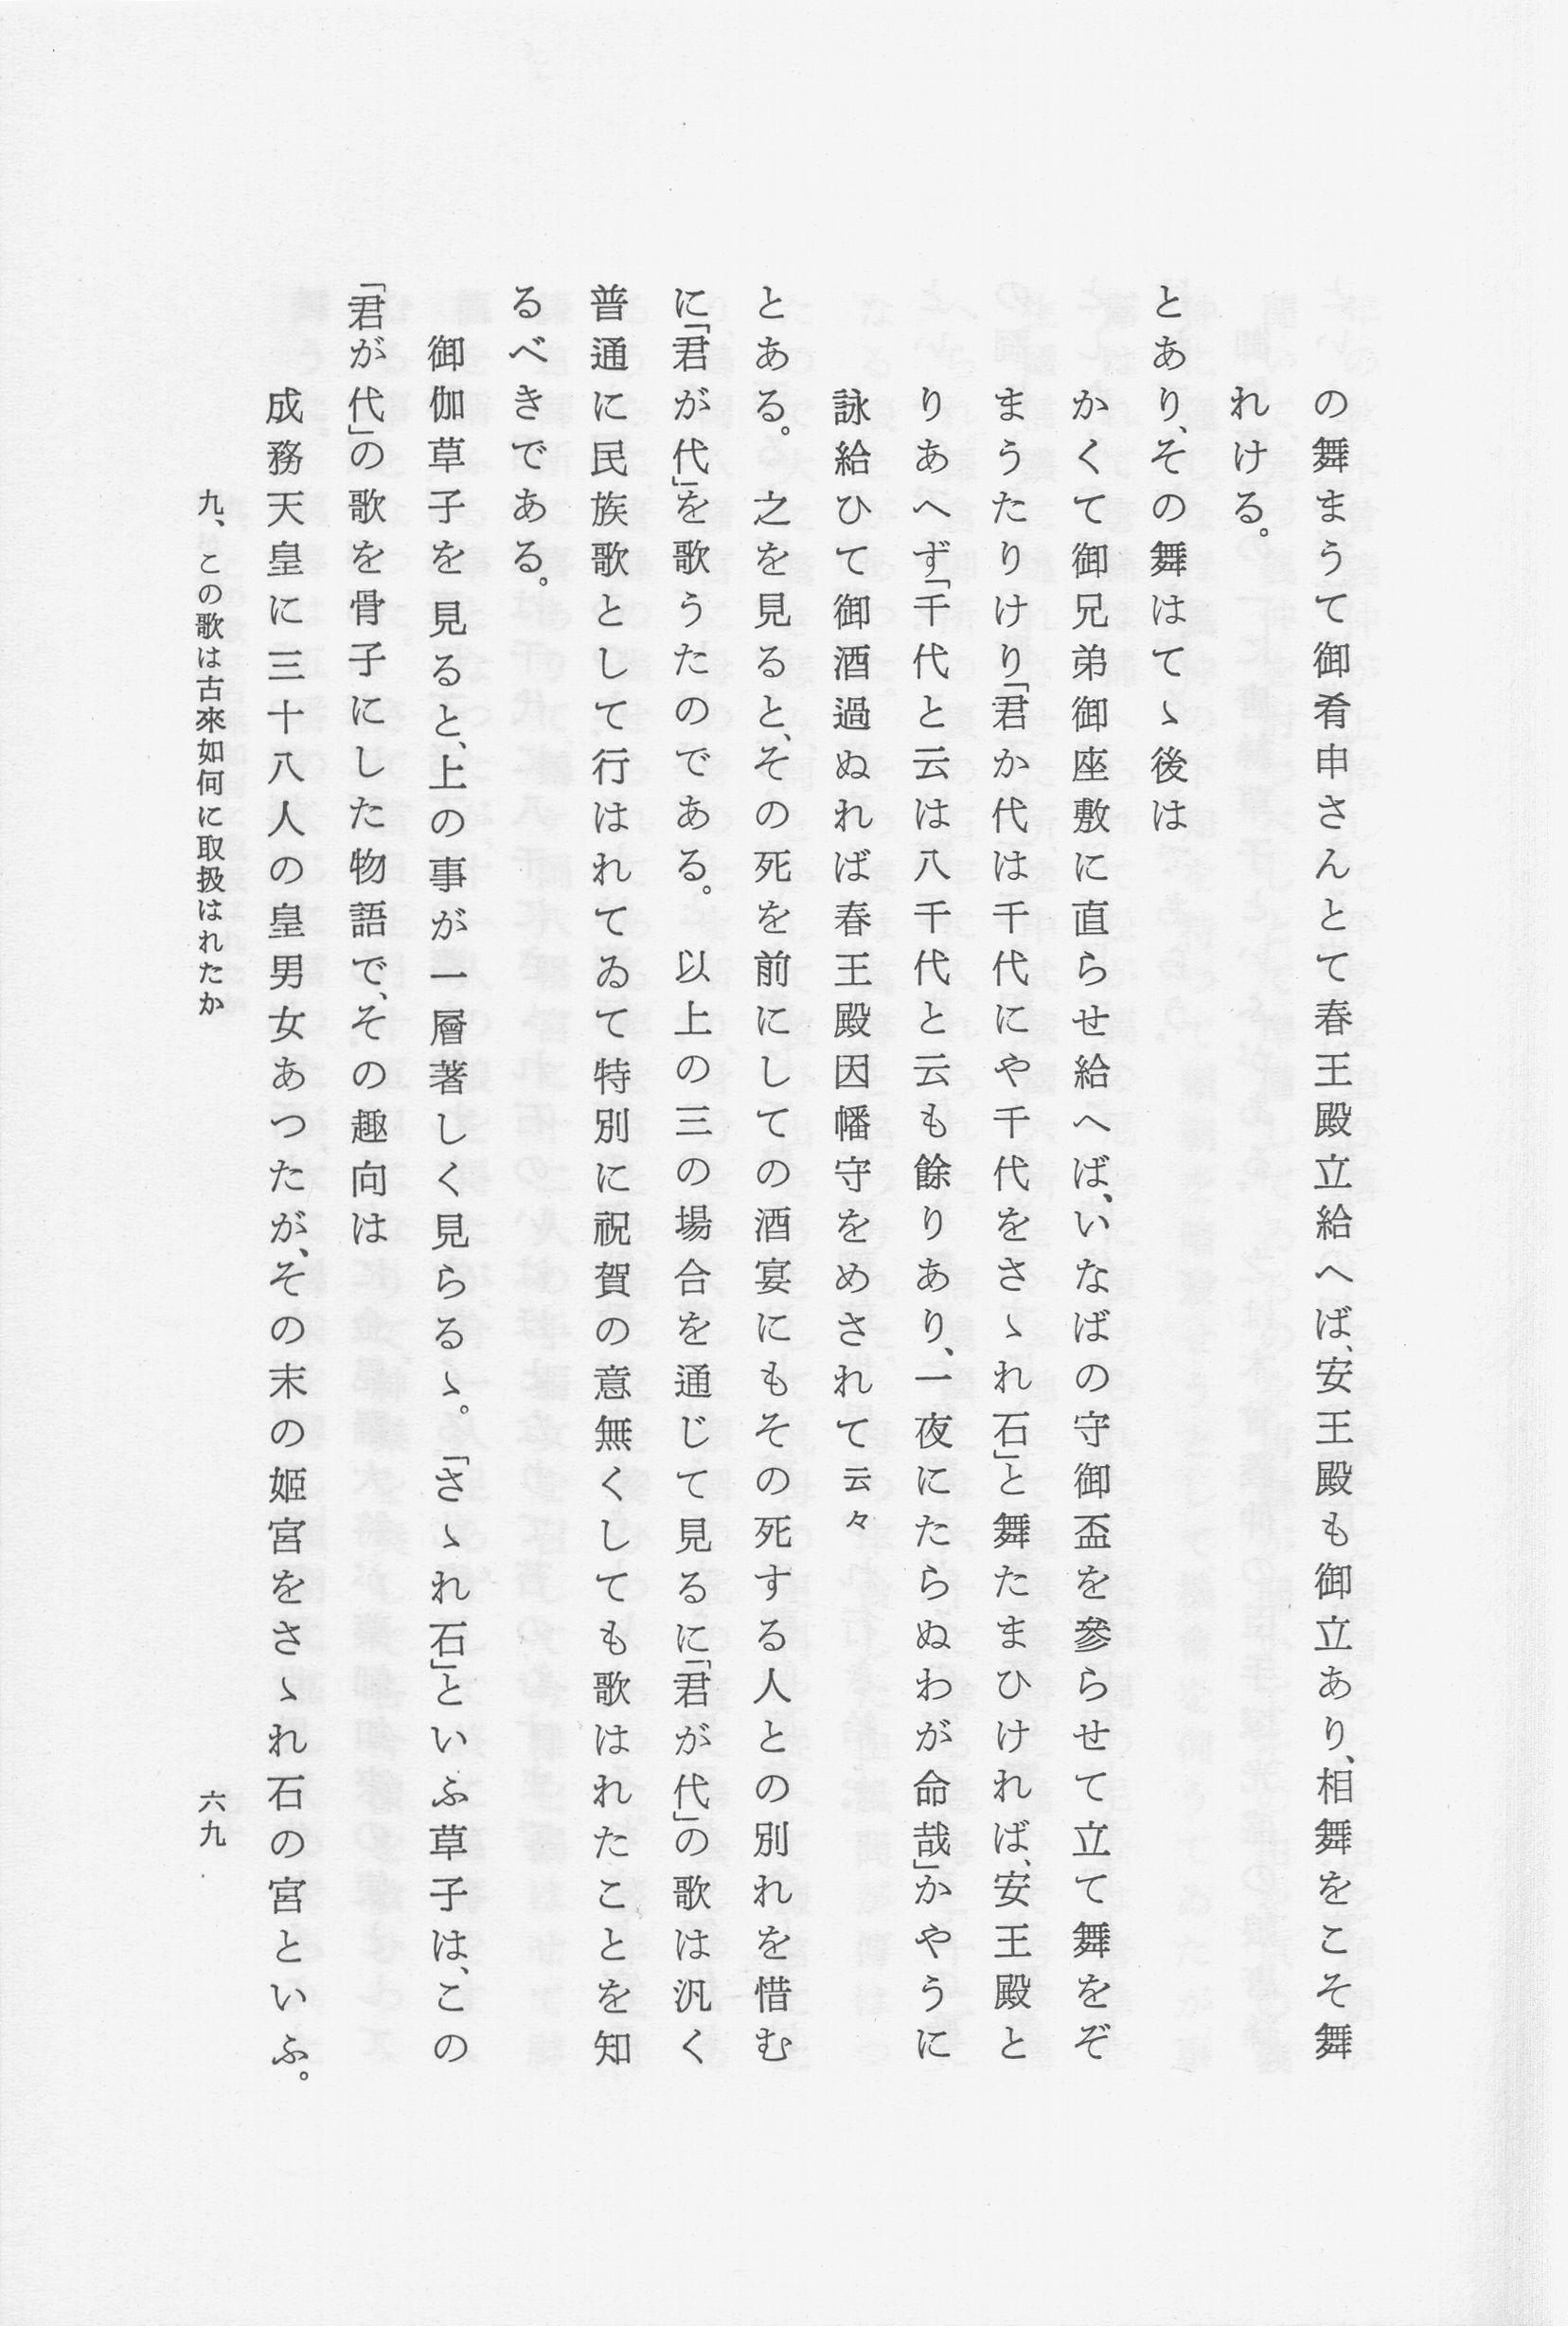 の舞まうて御肴申さんとて春王殿立給へば、安王殿も御立あり、相舞をこそ舞
れける。
とあり、その舞はてゝ後は
かくて御兄弟御座敷に直らせ給へば、いなばの守御盃を參らせて立て舞をぞ
まうたりけり「君か代は千代にや千代をさゝれ石」と舞たまひければ、安王殿と
りあへず「千代と云は八千代と云も餘りあり、一夜にたらぬわが命哉」かやうに
詠給ひて御酒過ぬれば春王殿因幡守をめされて云々
とある。之を見ると、その死を前にしての酒宴にもその死する人との別れを惜む
に「君が代」を歌うたのである。以上の三の場合を通じて見るに「君が代」の歌は汎く
普通に民族歌として行はれてゐて特別に祝賀の意無くしても歌はれたことを知
るべきである。
御伽草子を見ると、上の事が一層著しく見らるゝ。「さゝれ石」といふ草子は、この
「君が代」の歌を骨子にした物語で、その趣向は
成務天皇に三十八人の皇男女あつたが、その末の姬宮をさゝれ石の宮といふ。
九、この歌は古來如何に取扱はれたか
六九